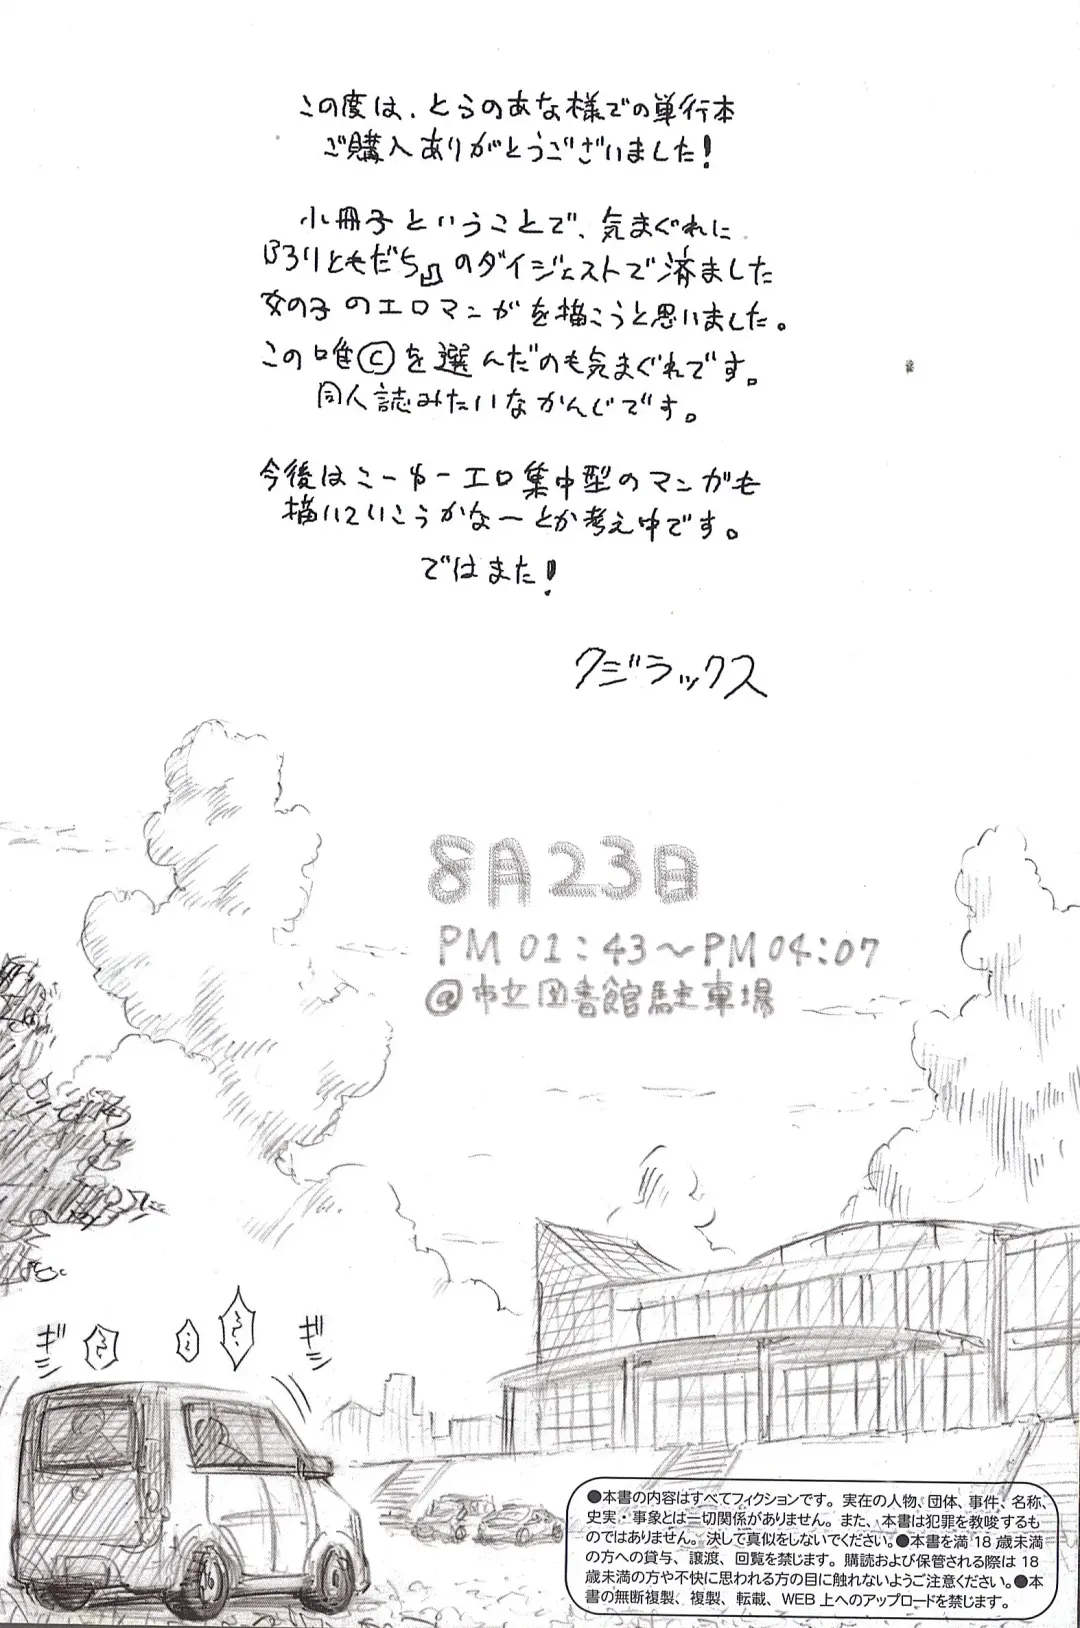 この度は、とらのあな様での単行本
ご購入ありがとうございました!
小冊子ということで、気まぐれに
『ろりともだち』のダイジェストで済ました
女の子のエロマンガを描こうと思いました。
この唯©を選んだのも気まぐれです。
同人誌みたいなかんじです。
今後はこーゆーエロ集中型のマンガも
描いていこうかなーとか考え中です。
ではまた!
クジラックス
8月23日
PM 01:43〜PM 04:07
@市立図書館駐車場
ギシ
ギシ
●本書の内容はすべてフィクションです。実在の人物、団体、事件、名称、
史実・事象とは一切関係がありません。また、本書は犯罪を教唆するも
のではありません。決して真似をしないでください。●本書を満18歳未満
の方への貸与、譲渡、回覧を禁じます。購読および保管される際は18
歳未満の方や不快に思われる方の目に触れないようご注意ください。●本
書の無断複製、複製、転載、WEB上へのアップロードを禁じます。